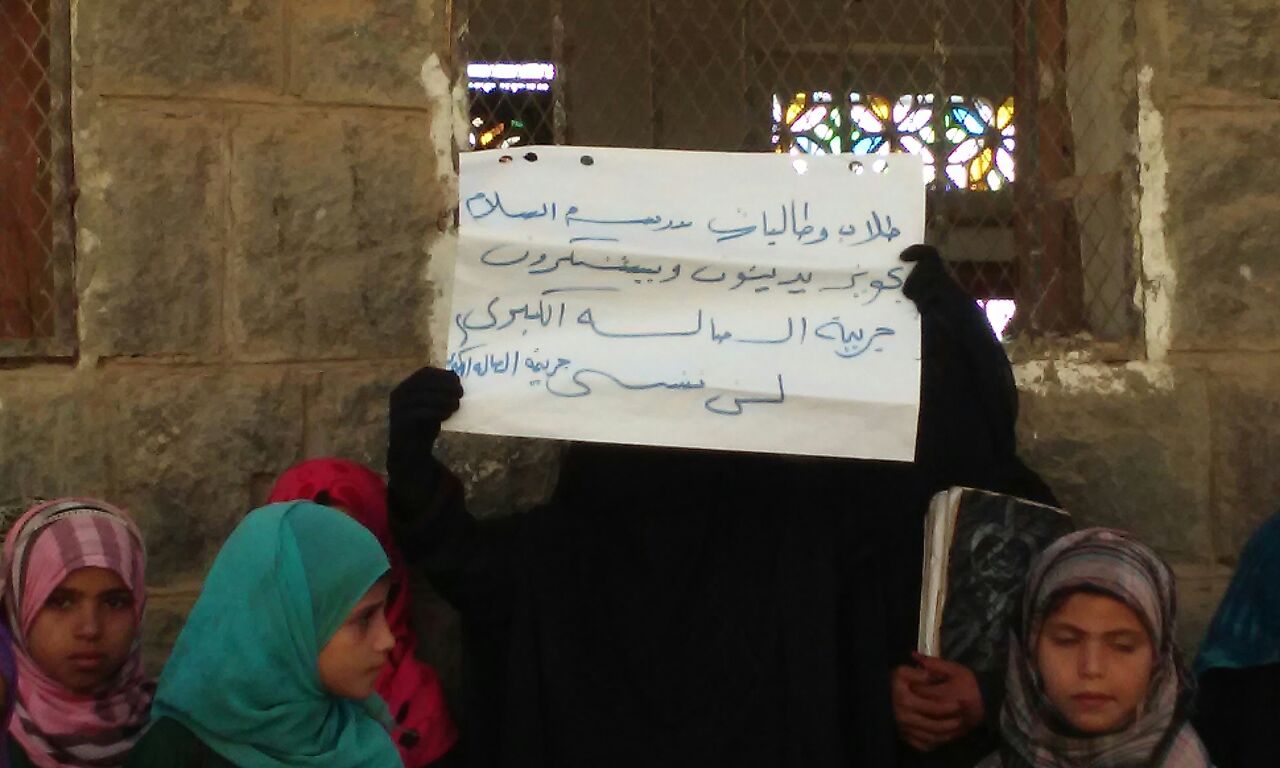 طلاب وطالبات مدرسة السلام
بعوبر يدينون ويستنكرون
جريمة الصالة الكبرى
لن ننسى جريمة الصالة الكبرى